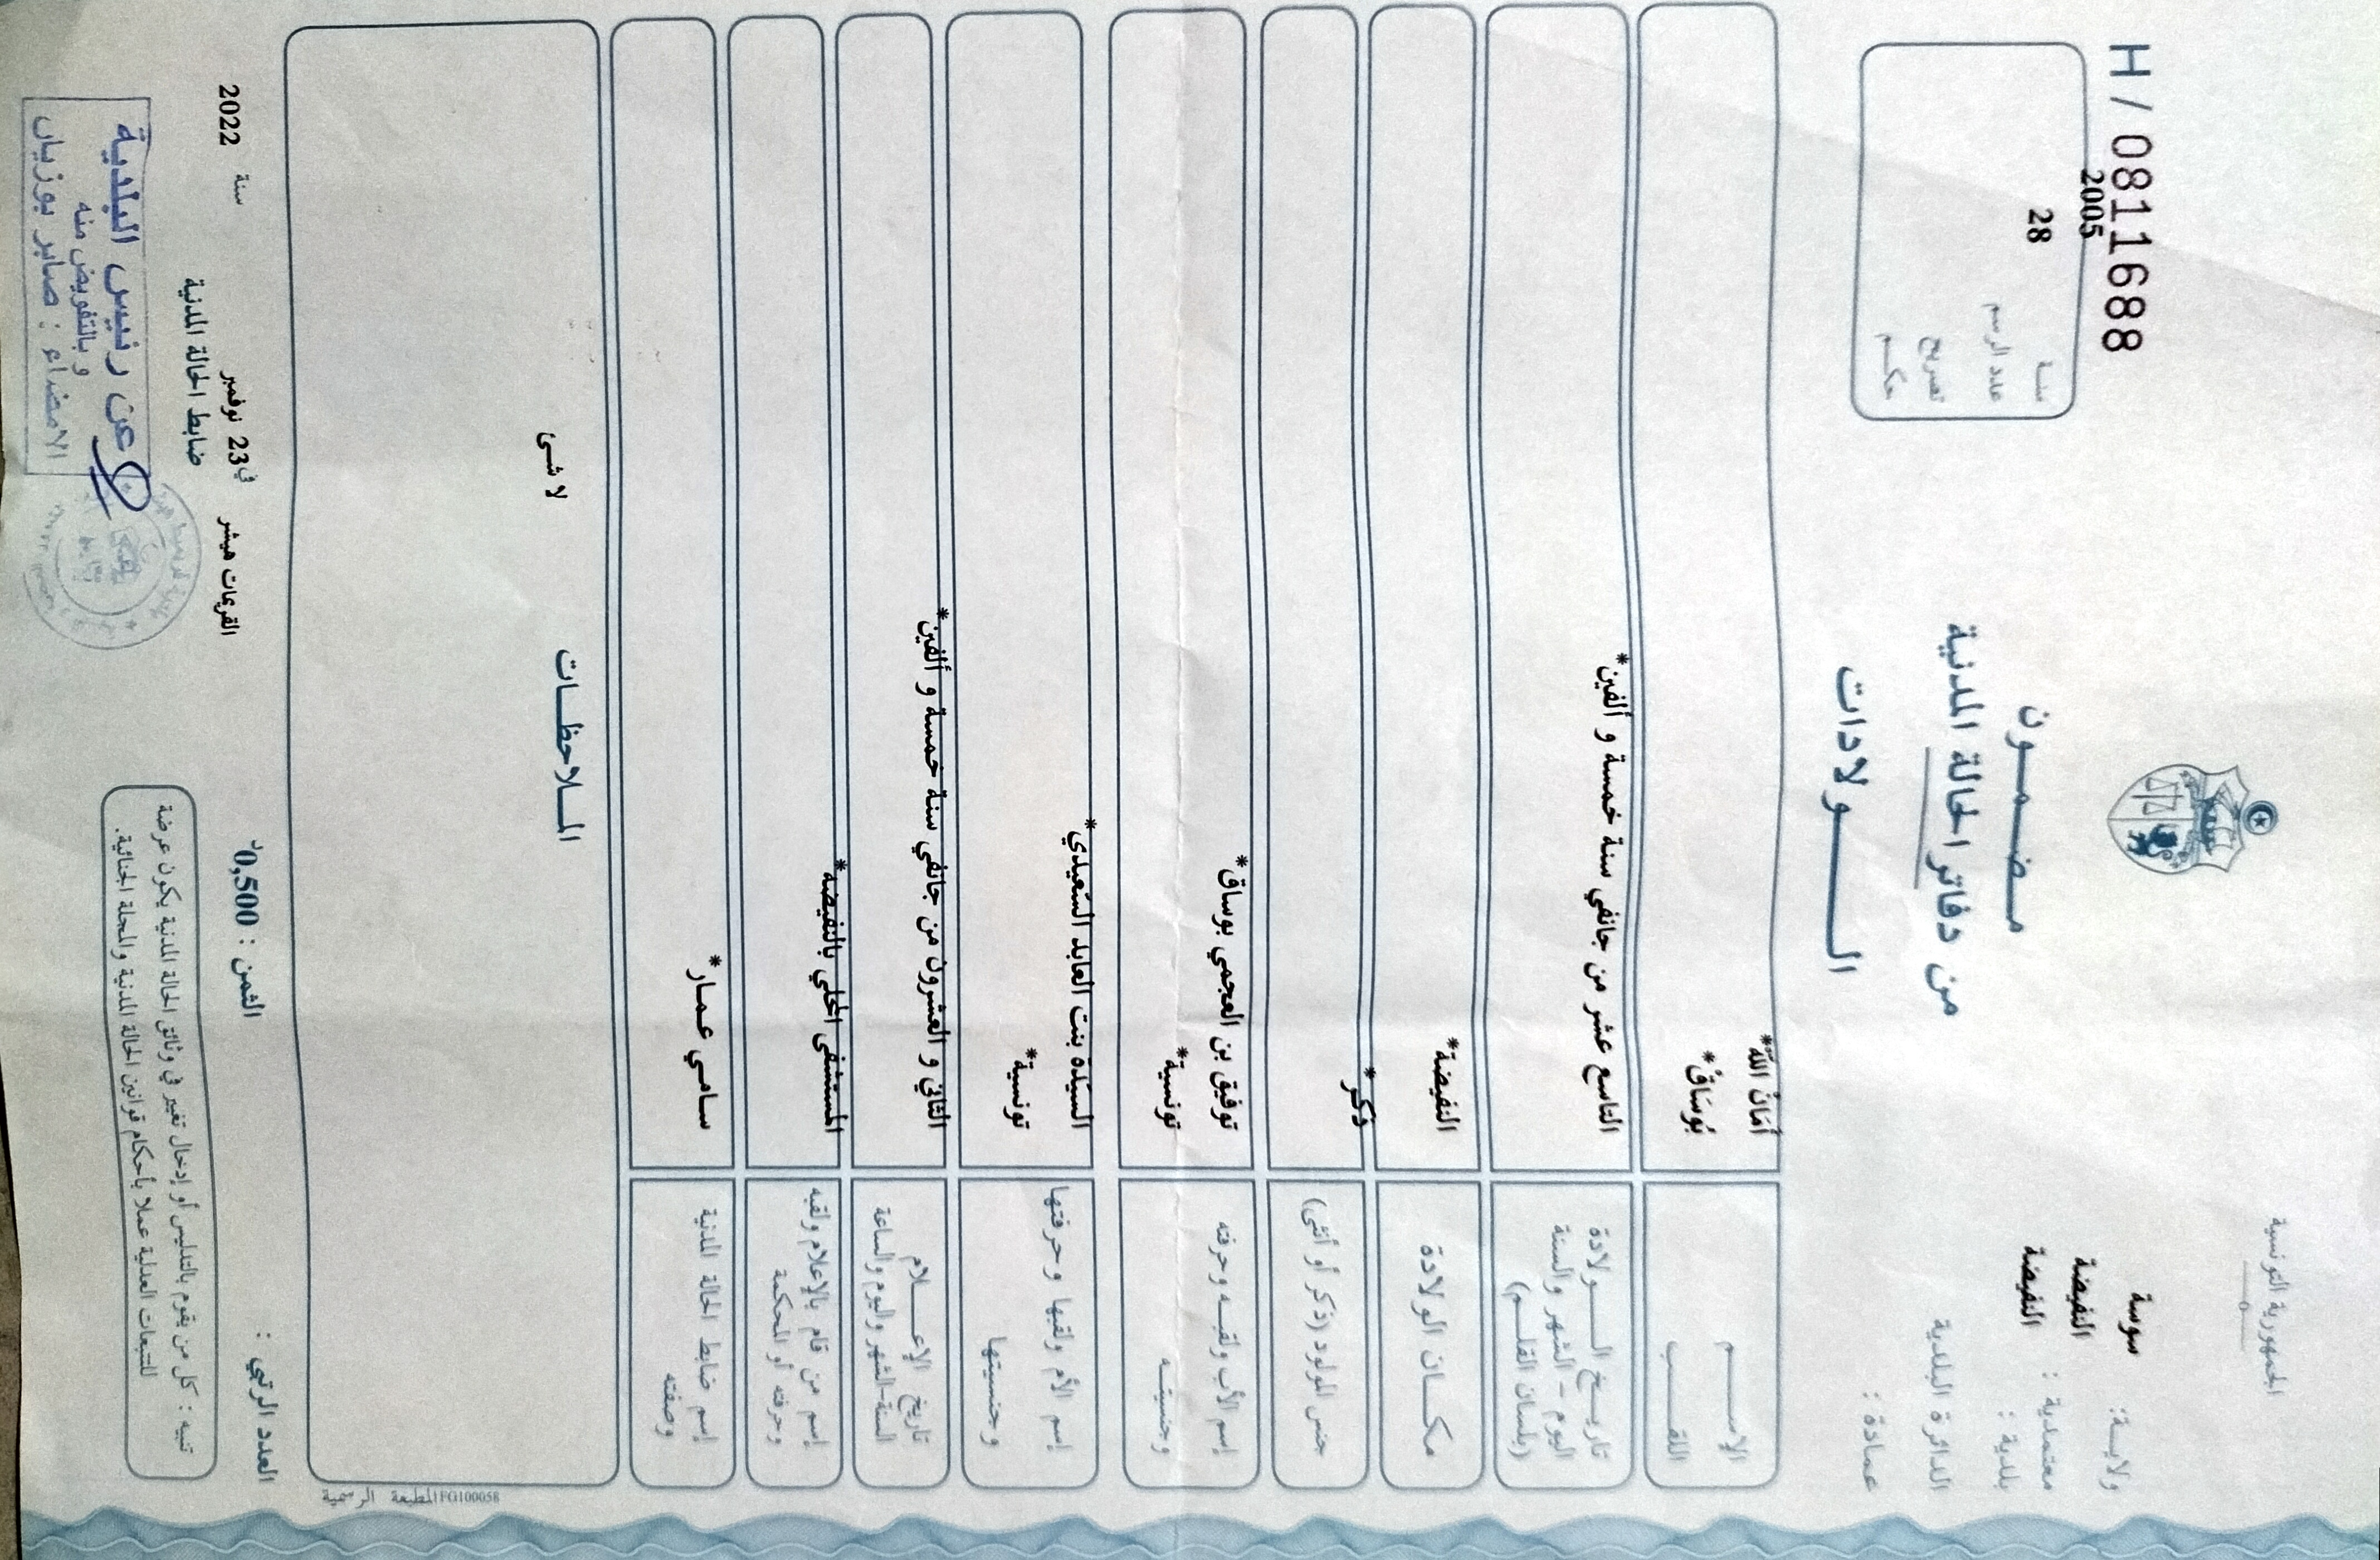 الجمهورية التونسية
ولايـــة: سوسة
معتمدية : النفيضة
بلدية : النفيضة
الدائرة البلدية
عمادة :
H / 0811688
سنـة 2005
عدد الرسم 28
تصريح
حكــم
مــضــمــون
من دفاتر الحالة المدنية
الــــولادات
الإســـم أمَانُ اللّه*
اللقــب بُوسَاقْ*
تاريــخ الــــولادة
اليوم - الشهر والسنة
(بلسان القلــم)
التاسع عشر من جانفي سنة خمسة و ألفين*
مكــان الولادة النفيضة*
جنس المولود (ذكر أو أنثى) ذكر*
إسم الأب ولقبــه وحرفته توفيق بن العجمي بوساق*
وجنسيتــه تونسية*
إسم الأم ولقبها وحرفتها السيّدة بنت العابد السّعيدي*
وجنسيتها تونسية*
تاريخ الإعـــلام
السنة-الشهر واليوم والساعة
الثاني و العشرون من جانفي سنة خمسة و ألفين*
إسم من قام بالإعلام ولقبه المستشفى المحلي بالنفيضة*
وحرفته أو المحكمة
إسم ضابط الحالة المدنية سـامـي عـمـار*
وصفته
المــلاحظــات
لا شئ
المطبعة الرسمية FG100058
العدد الرتبي :
الثمن : 0,500د
القريمات هيشر في 23 نوفمبر سنة 2022
ضابط الحالة المدنية
تنبيه : كل من يقوم بالتدليس أو إدخال تغيير في وثائق الحالة المدنية يكون عرضة
للتتبعات العدلية عملا بأحكام قوانين الحالة المدنية والمجلة الجنائية.
عن رئيس البلدية
وبالتفويض منه
الامضاء : صابر بوزيان